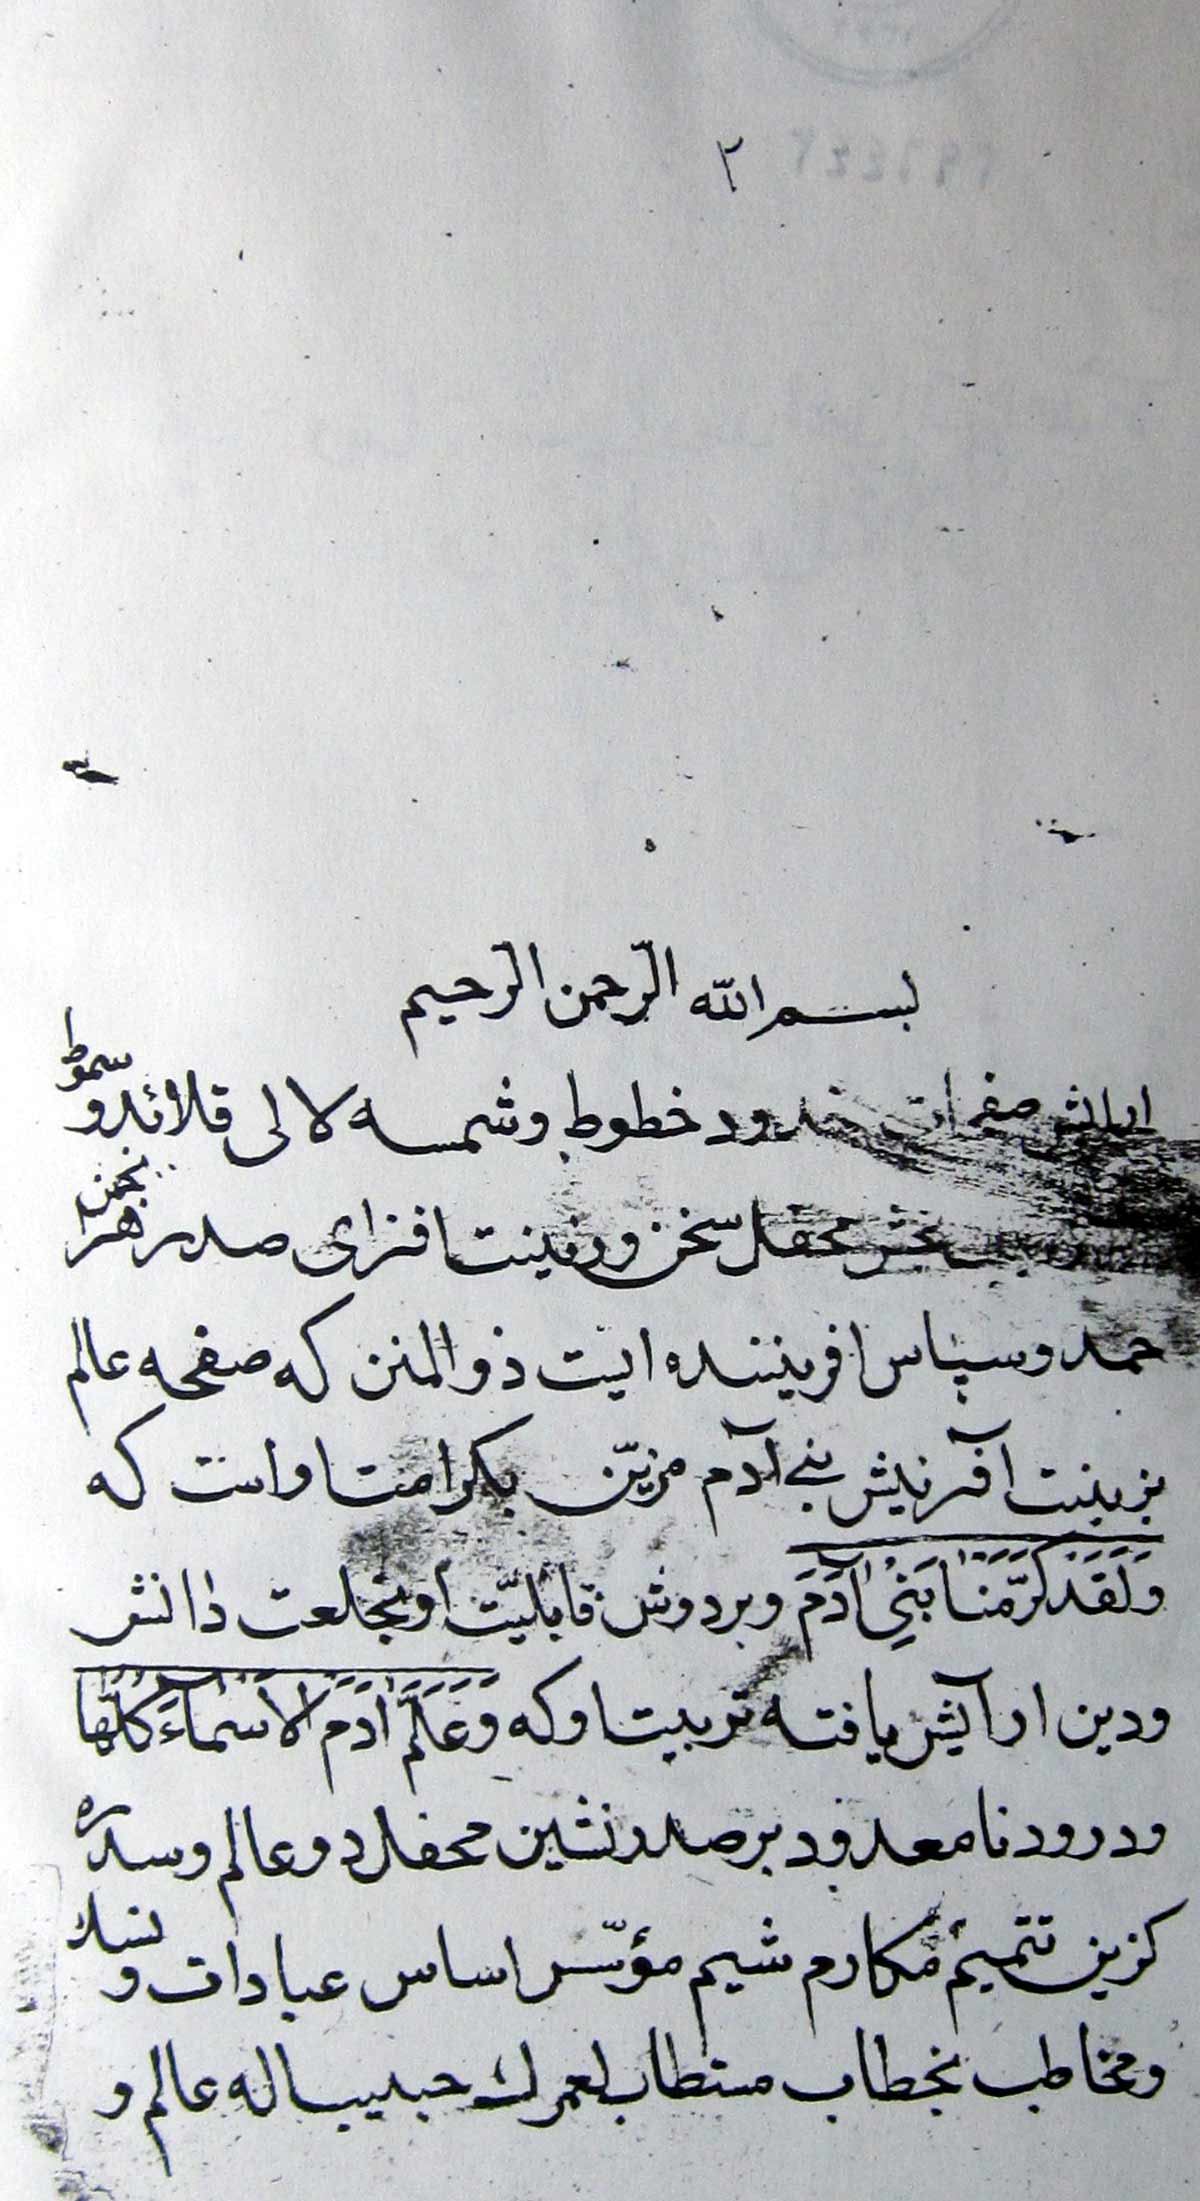 ٢
بسم الله الرّحمن الرّحيم
صفحات خدود خطوط وشمسه لالی قلائد و سموط
بخش محفل سخن وزینت افزای صدر هر انجمن
حمد وسپاس افریننده ایست ذو المنن که صفحه عالم
بزینت آفرینش بنی آدم مزیّن بکرامت اواست که
وَلَقَدْ كَرَّمْنَا بَنِي آدَمَ وبردوش قابلیّت او بخلعت دانش
ودین ارآیش یافته تربیت اوکه وَعَلَّمَ آدَمَ الْاَسْمَآءَ كُلَّهَا
ودرود نامعدود بر صدر نشین محفل دو عالم وسدره
کزین تتمیم مکارم شیم مؤسّس اساس عبادات و نسك
ومخاطب بخطاب مستطاب لعمرك حبیب اله عالم و